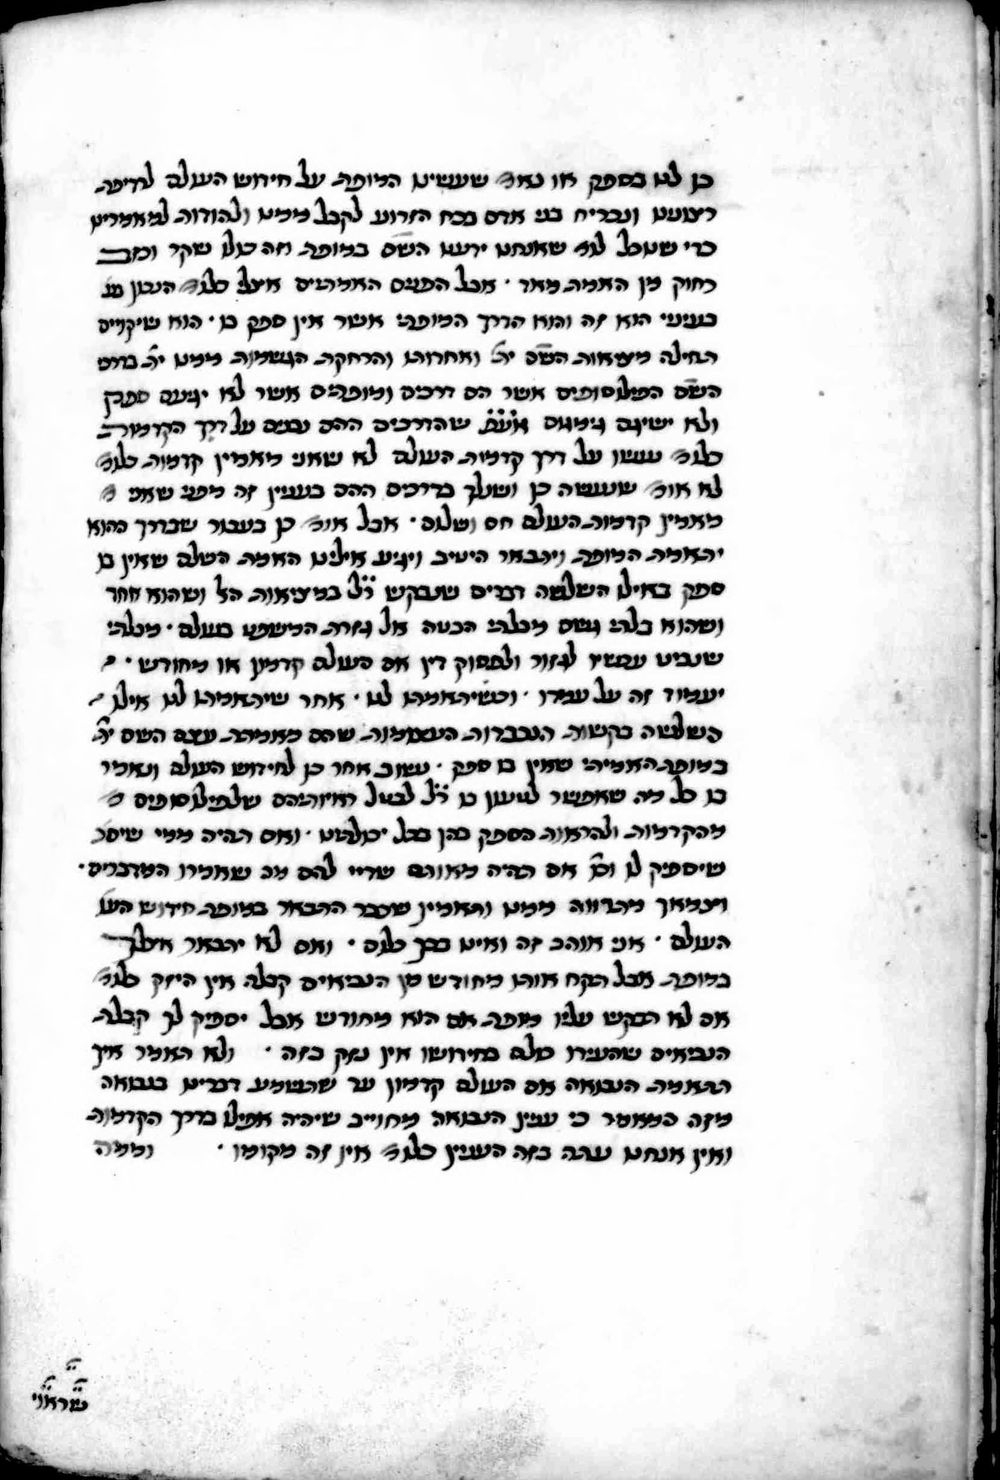 כן לנו בספק או נאמר שעשינו המופת על חידוש העולם לרדיפת
רצוננו ונכריח בני אדם בכח הזרוע לקבל ממנו ולהודות למאמרינו
כדי שנוכל לומר שאנחנו ידענו השם במופת וזה כולו שקר וכזב
רחוק מן האמת מאד · אבל הפנים האמתיים אצלי כלומר הנכון
בעיני הוא זה והוא הדרך המופתי אשר אין ספק בו · הוא שיקויים
תחילה מציאות השם ית' ואחדותו והרחקת הגשמות ממנו ית' בדרכי
השם הפילוסופים אשר הם דרכים ומופתים אשר לא יגיעם ספק
ולא ישיגם גימגום שהדרכים ההם נבנים על דרך הקדמות
כלומר נעשו על דרך קדמות העולם לא שאני מאמין קדמות כלומר
לא אומר שנעשה כן ושנלך בדרכים ההם בענין זה מפני שאני
מאמין קדמות העולם חס ושלום · אבל אומר כן בעבור שבדרך ההוא
יתאמת המופת ויתבאר היטיב ויגיע אילינו האמת השלם שאין בו
ספק באילו השלשה דברים שנבקש ר"ל במציאות האל ושהוא אחד
ושהוא בלתי גשם מבלתי הבטה אל גזרת המשפט בעולם · מבלתי
שנביט עכשיו לגזור ולפסוק דין אם העולם קדמון או מחודש ·
יעמוד זה על עמדו · וכשיתאמתו לנו · אחר שיתאמתו לנו אילו
השלשה בקשות הנכבדות העצומות שהם מאמתת עצם השם ית'
במופת האמיתי שאין בו ספק · נשוב אחר כן לחידוש העולם ונאמר
בו כל מה שאפשר לטעון בו ר"ל לבטל ראיותיהם שלפילוסופים
מהקדמות ולהראות הספק בהן בכל יכולתנו · ואם תהיה ממי שיסב'
שיספיק לו וכ' אם תהיה מאותם שדיי להם מה שאמרו המדברים ·
ויצמאך מהרווה ממנו ותאמין שכבר התבאר במופת חידוש העו
העולם · אני אוהב זה ואינו בכך כלום · ואם לא יתבאר אצלך
במופת אבל תקח אותו מחודש מן הנביאים קבלה אין היזק כלומר
אם לא תבקש עליו מופת אם הוא מחודש אבל יספיק לך קבלת
הנביאים שהעידו כולם בחידושו אין נזק בזה · ולא תאמר איך
תתאמת הנבואה אם העולם קדמון עד שתשמע דברינו בנבואה
מזה המאמר כי ענין הנבואה מחוייב שיהיה אפילו בדרך הקדמות
ואין אנחנו עתה בזה הענין כלומר אין זה מקומו · וממה